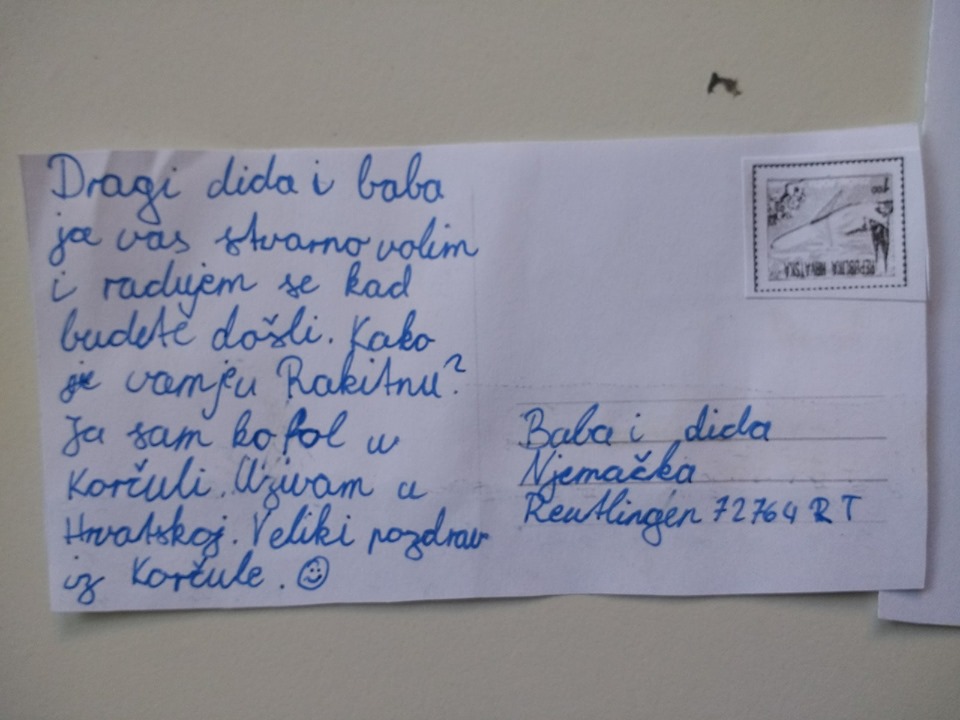 Dragi dida i baba
ja vas stvarno volim
i radujem se kad
budete došli. Kako
je vamju Rakitnu?
Ja sam ko fol u
Korčuli. Uživam u
Hrvatskoj. Veliki pozdrav
iz Korčule. ☺
1,00
REPUBLIKA HRVATSKA
Baba i dida
Njemačka
Reutlingen 72764 RT